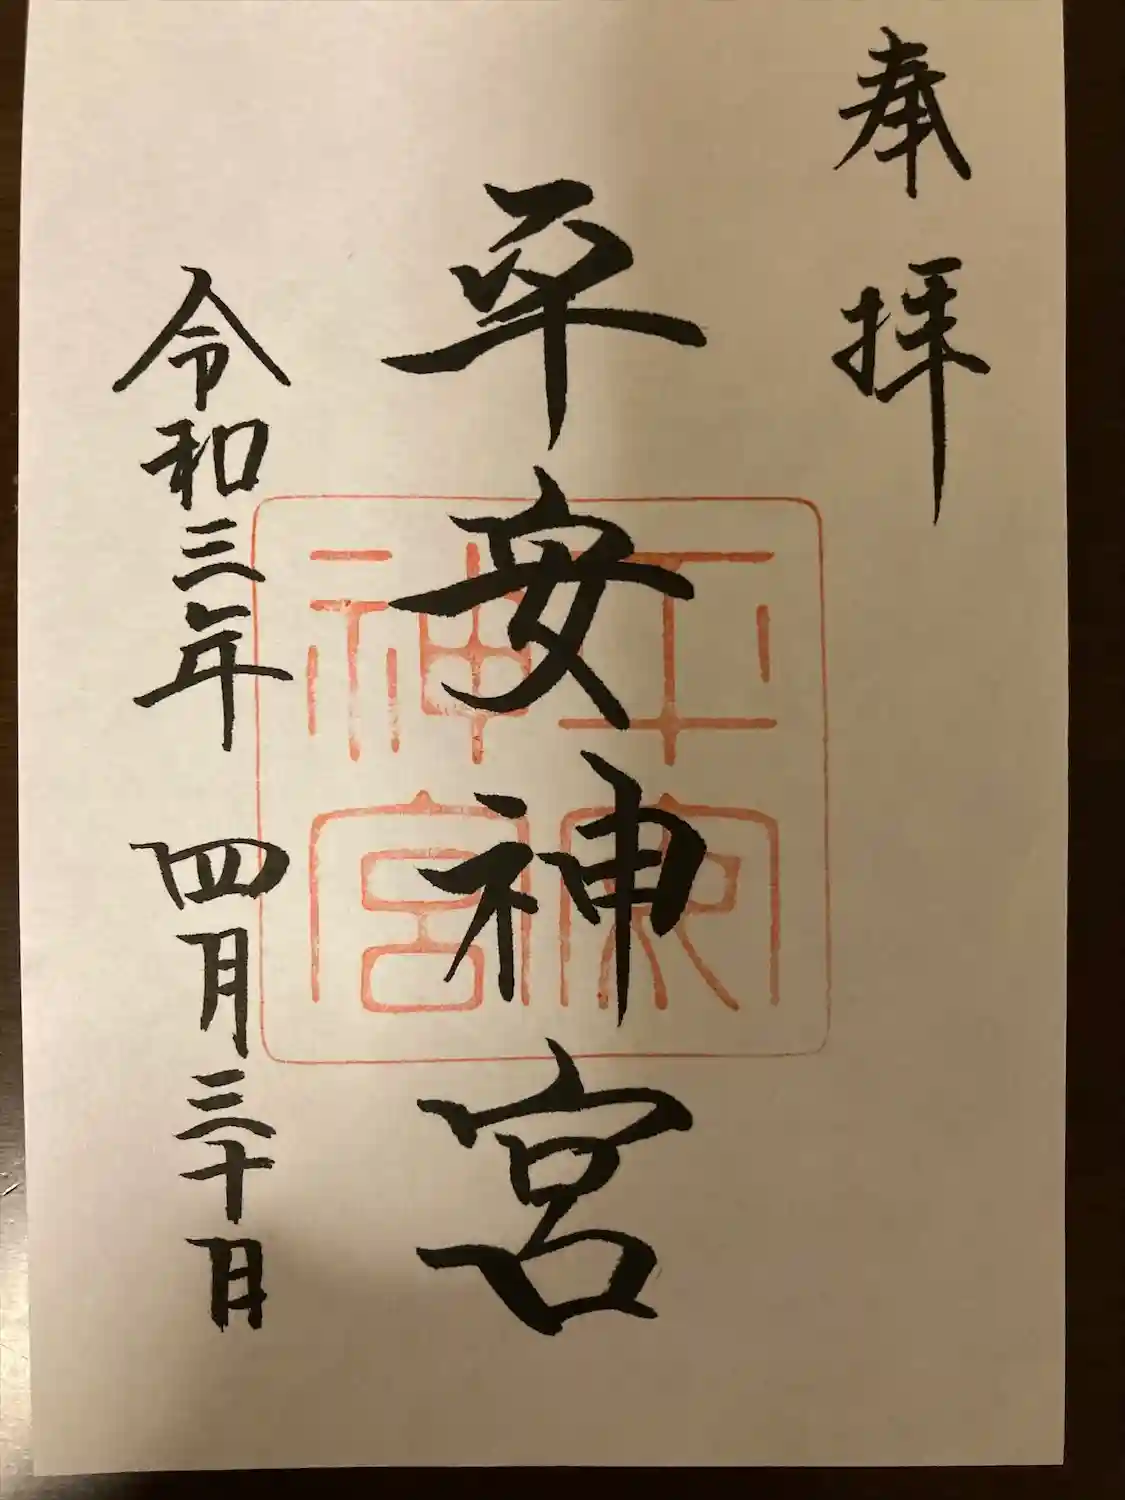 奉拝
平安神宮
令和三年 四月三十日
平安神宮